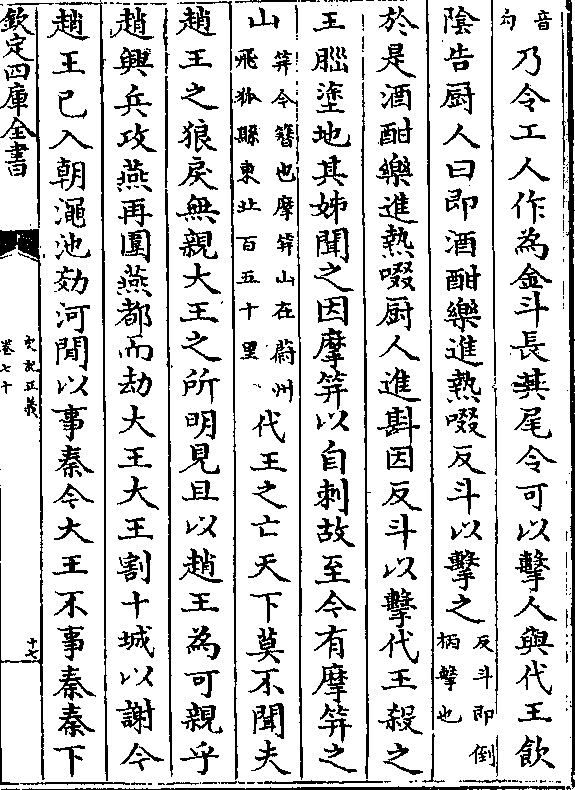 音勾乃令工人作為金斗長其尾令可以擊人與代王飲
陰告厨人曰即酒酣樂進熱啜反斗以擊之反斗即倒柄擊也
於是酒酣樂進熱啜厨人進斟因反斗以擊代王殺之
王腦塗地其姊聞之因摩笄以自刺故至今有摩笄之
山笄今簮也摩笄山在蔚州飛狐縣東北百五十里代王之亡天下莫不聞夫
趙王之狼戾無親大王之所明見且以趙王為可親乎
趙興兵攻燕再圍燕都而劫大王大王割十城以謝今
趙王已入朝澠池効河間以事秦今大王不事秦秦下
欽定四庫全書
史記正義
卷七十
十七